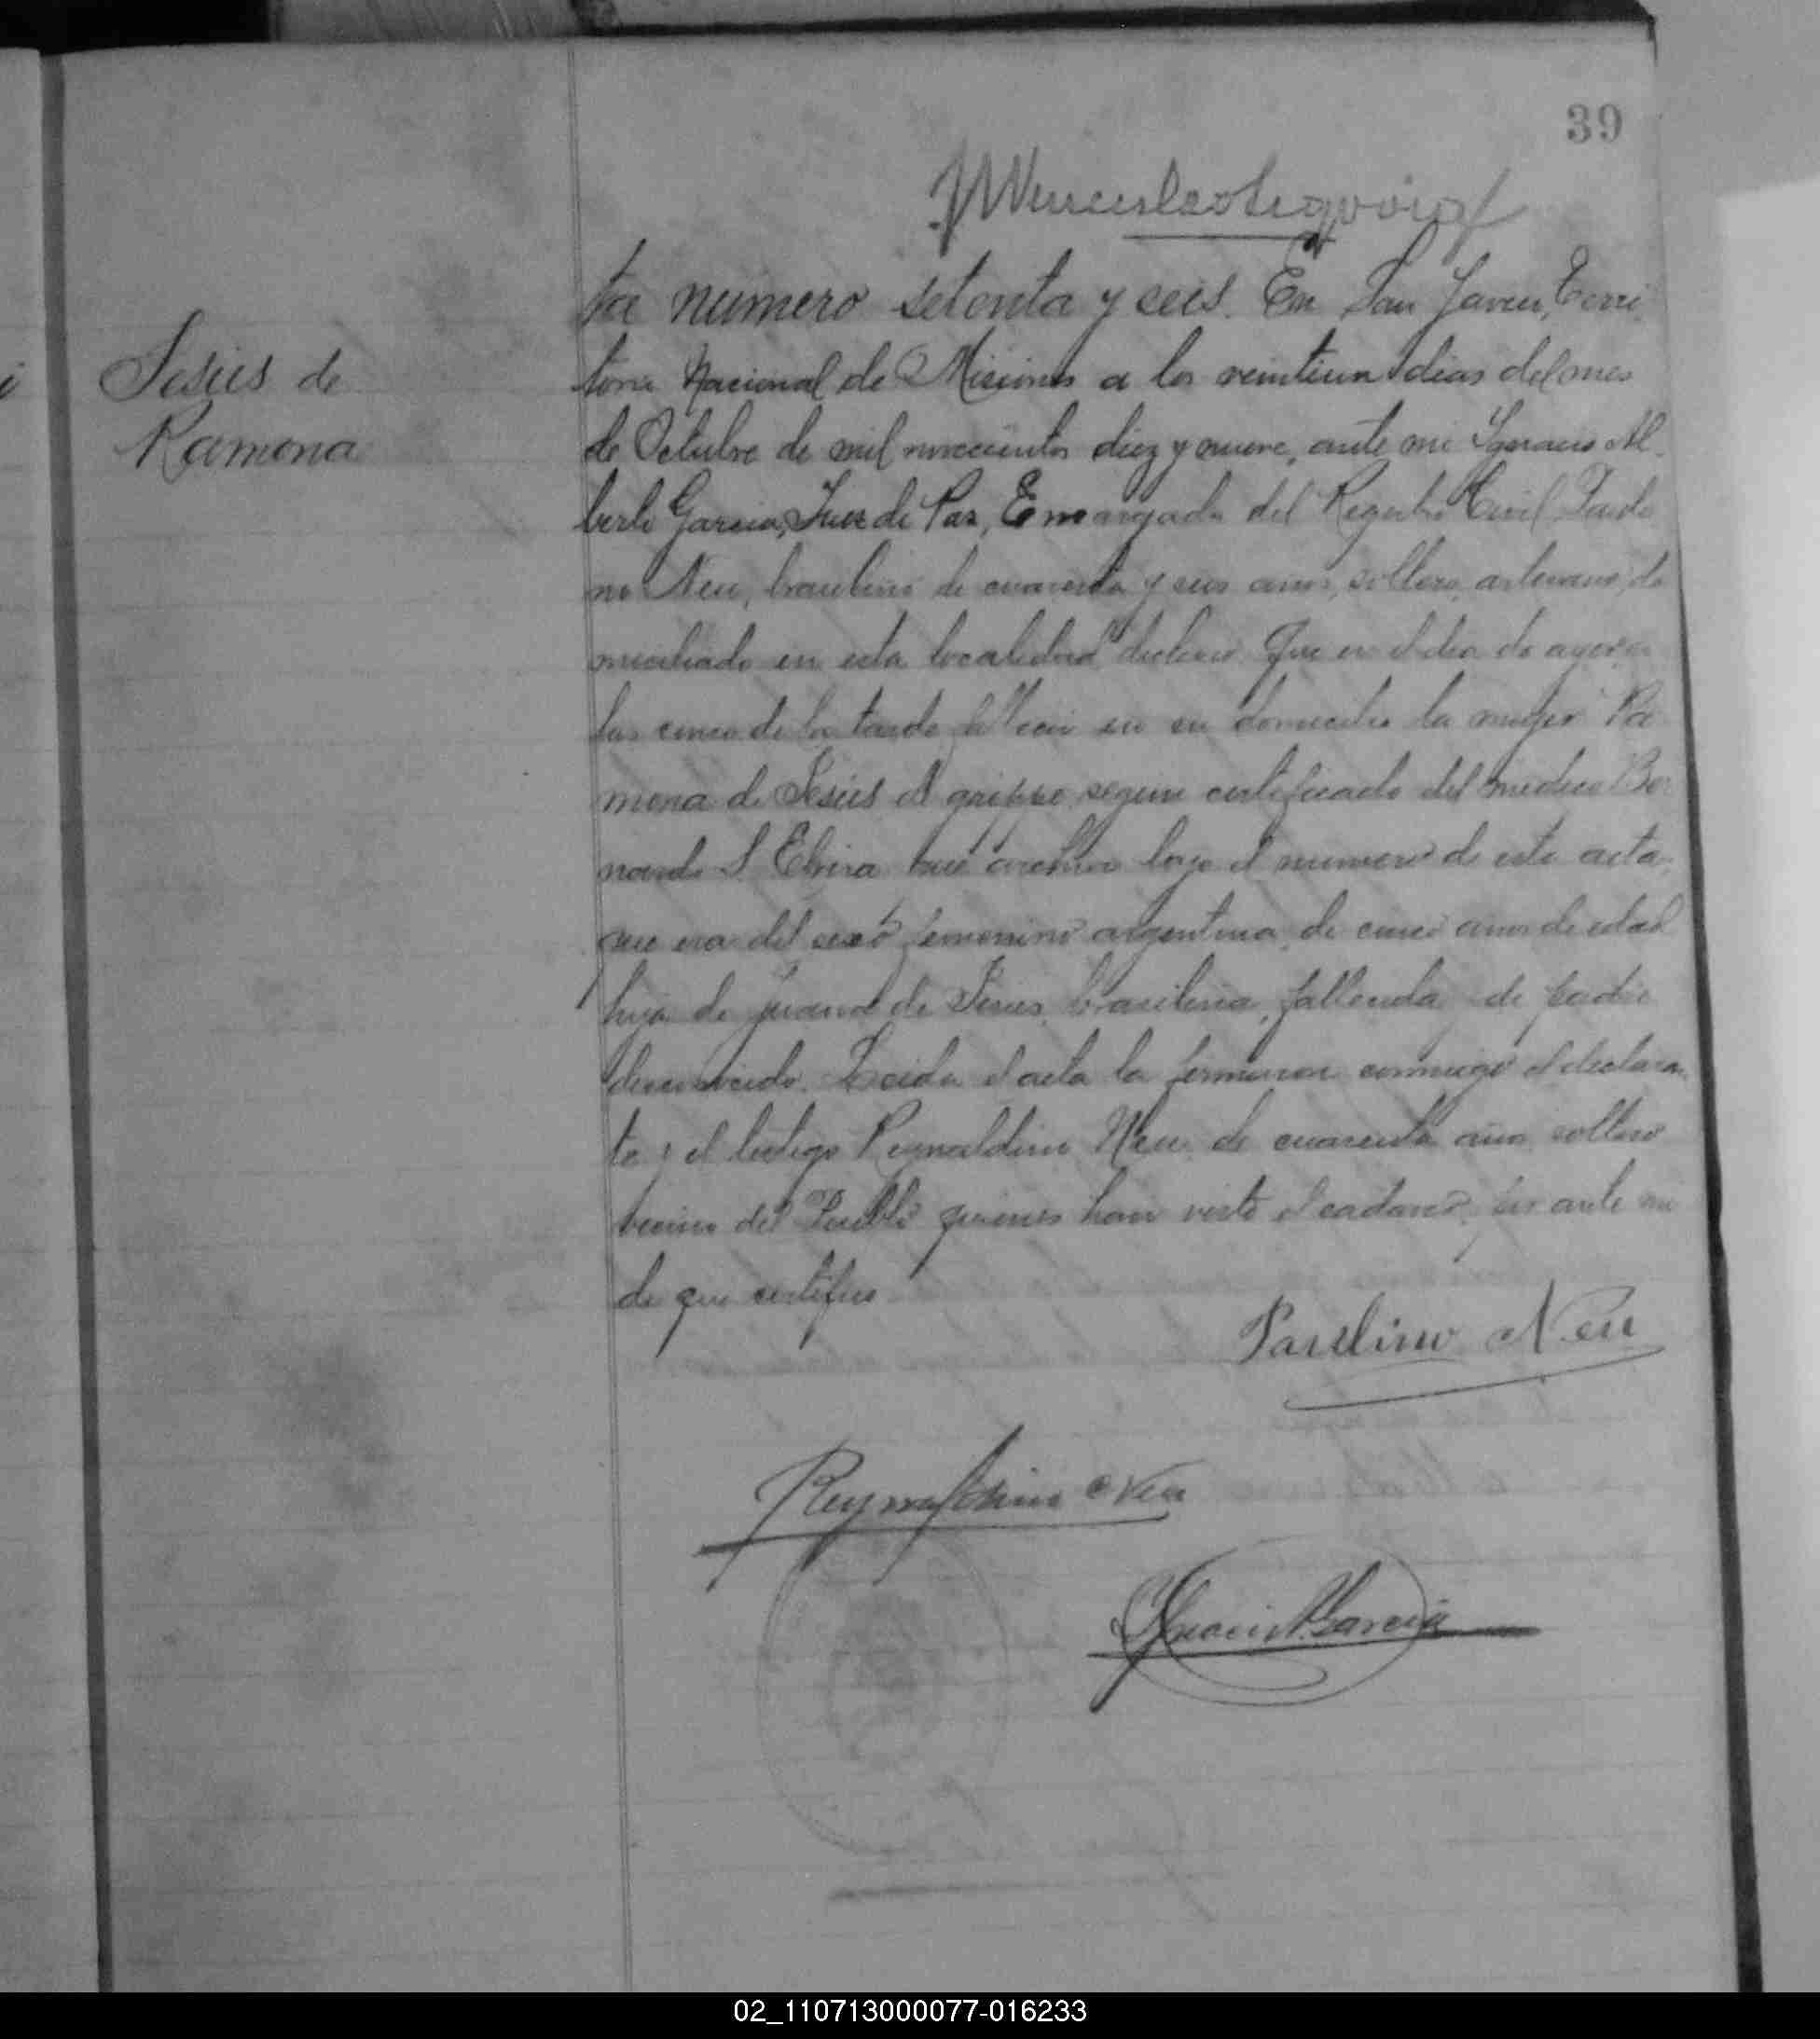 39
Jesús de
Ramona
ta numero setenta y seis. En San Javier, Terri
torio Nacional de Misiones a los veintiun dias del mes
de Octubre de mil novecientos diez y nueve, ante mi Ignacio Al
berto Garcia, Juez de Paz, Encargado del Registro Civil Pauli
no Neu, brasilero de cuarenta y seis años, soltero, artesano, do
miciliado en esta localidad declaro Que en el dia de ayer a
las cinco de la tarde falleció en su domicilio la mujer Ra
mona de Jesús de grippe segun certificado del medico Ber
nardo S. Elvira que archivo bajo el numero de esta acta
que era del sexo femenino argentina, de cinco años de edad
hija de Juana de Jesus, brasilera, fallecida de padre
desconocido. Leida el acta la firmaron conmigo el declaran
te y el testigo Reynaldino Neu de cuarenta años soltero
vecino del Pueblo quienes han visto el cadaver, por ante mi
de que certifico
Paulino Neu
Reynaldino Neu
Ignacio A. Garcia
02_110713000077-016233